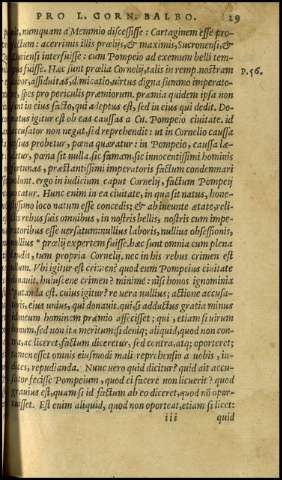 PRO L. CORN. BALBO. 29
nunquam à Memmio discessisse: Carthaginem esse pro-
: acerrimis illis prælijs, & maximis, Sucronensi, &
interfuisse: cum Pompeio ad extremum belli tem-
fuisse. Hæc sunt prælia Cornelij, talis in remp. nostram P. 56.
assiduitas, dimicatio, uirtus digna summo imperato-
spes pro periculis præmiorum. præmia quidem ipsa non
in eius facto, qui adeptus est, sed in eius qui dedit. Do-
igitur est ob eas caussas à Cn. Pompeio ciuitate. id
accusator non negat, sed reprehendit: ut in Cornelio caussa
probetur, pœna quæratur: in Pompeio, caussa læ-
pœna sit nulla. sic famam. sic innocentissimi hominis
præstantissimi imperatoris factum condemnari
ergo in iudicium caput Cornelij, factum Pompeij
Hunc enim in ea ciuitate, in qua sit natus, hone-
loco natum esse concedis; & ab ineunte ætate, reli-
rebus suis omnibus, in nostris bellis, nostris cum impe-
esse uersatum: nullius laboris, nullius obsessionis,
nullius * prælij expertem fuisse. hæc sunt omnia cum plena
tum propria Cornelij, nec in his rebus crimen est
Vbi igitur est crimen? quod eum Pompeius ciuitate
huiusce crimen? minime: nisi honos ignominia
est. cuius igitur? re uera nullius; actione accusa-
eius unius, qui donauit. qui si adductus gratia minus
hominem præmio affecisset: qui, etiam si uirum
sed non ita meritum: si deniq; aliquid, quod non con-
ac liceret, factum diceretur, sed contra, atq; oporteret;
esset omnis eiusmodi mali reprehensio a uobis, in-
repudianda. Nunc uero quid dicitur? quid ait accu-
fecisse Pompeium, quod ei facere non licuerit? quod
grauius est, quam si id factum ab eo diceret, quod nõ opor-
Est enim aliquid, quod non oporteat, etiam si licet:
iii quid